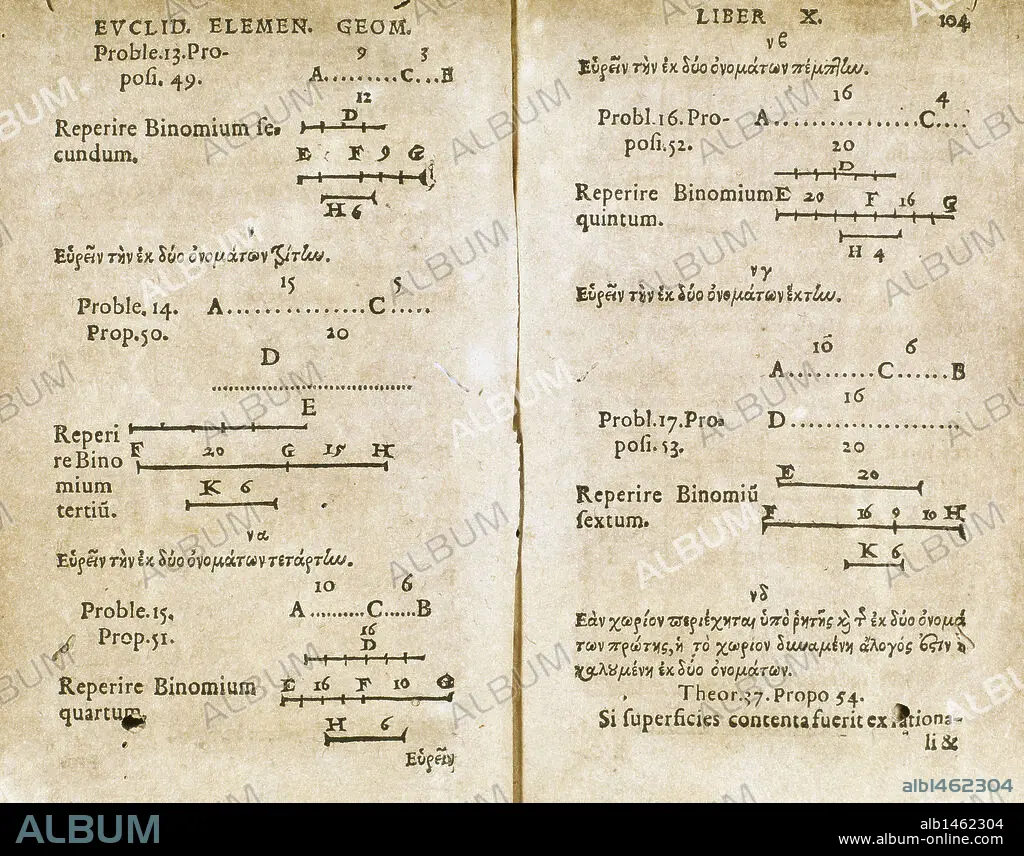 EVCLID. ELEMEN. GEOM.
Proble.13.Pro-
posi. 49.
9 3
A.........C...B
12
D
Reperire Binomium se-
cundum.
E F 9 G
H 6
Εὑρεῖν τὴν ἐκ δύο ὀνομάτων τρίτην.
15 5
Proble. 14.
Prop.50.
A...............C.....
20
D
E
Reperi
re Bino
mium
tertiū.
F 20 G 15 H
K 6
να
Εὑρεῖν τὴν ἐκ δύο ὀνομάτων τετάρτην.
10 6
Proble.15.
Prop.51.
A..........C......B
16
D
Reperire Binomium
quartum.
E 16 F 10 G
H 6
Εὑρεῖν
LIBER X.
104
νβ
Εὑρεῖν τὴν ἐκ δύο ὀνομάτων πέμπτην.
16 4
Probl.16.Pro-
posi.52.
A................C....
20
D
Reperire Binomium
quintum.
E 20 F 16 G
H 4
νγ
Εὑρεῖν τὴν ἐκ δύο ὀνομάτων ἕκτην.
10 6
A..........C......B
16
Probl.17.Pro-
posi.53.
D................
20
E 20
Reperire Binomiū
sextum.
F 16 9 10 H
K 6
νδ
Εὰν χωρίον περιέχηται ὑπὸ ῥητῆς καὶ τῆς ἐκ δύο ὀνομά
των πρώτης, ἡ τὸ χωρίον δυναμένη ἄλογός ἐστιν ἡ
καλουμένη ἐκ δύο ὀνομάτων.
Theor.37. Propo 54.
Si superficies contenta fuerit ex rationa-
li &
alb1462304
ALBUM
alb1462304
www.album-online.com